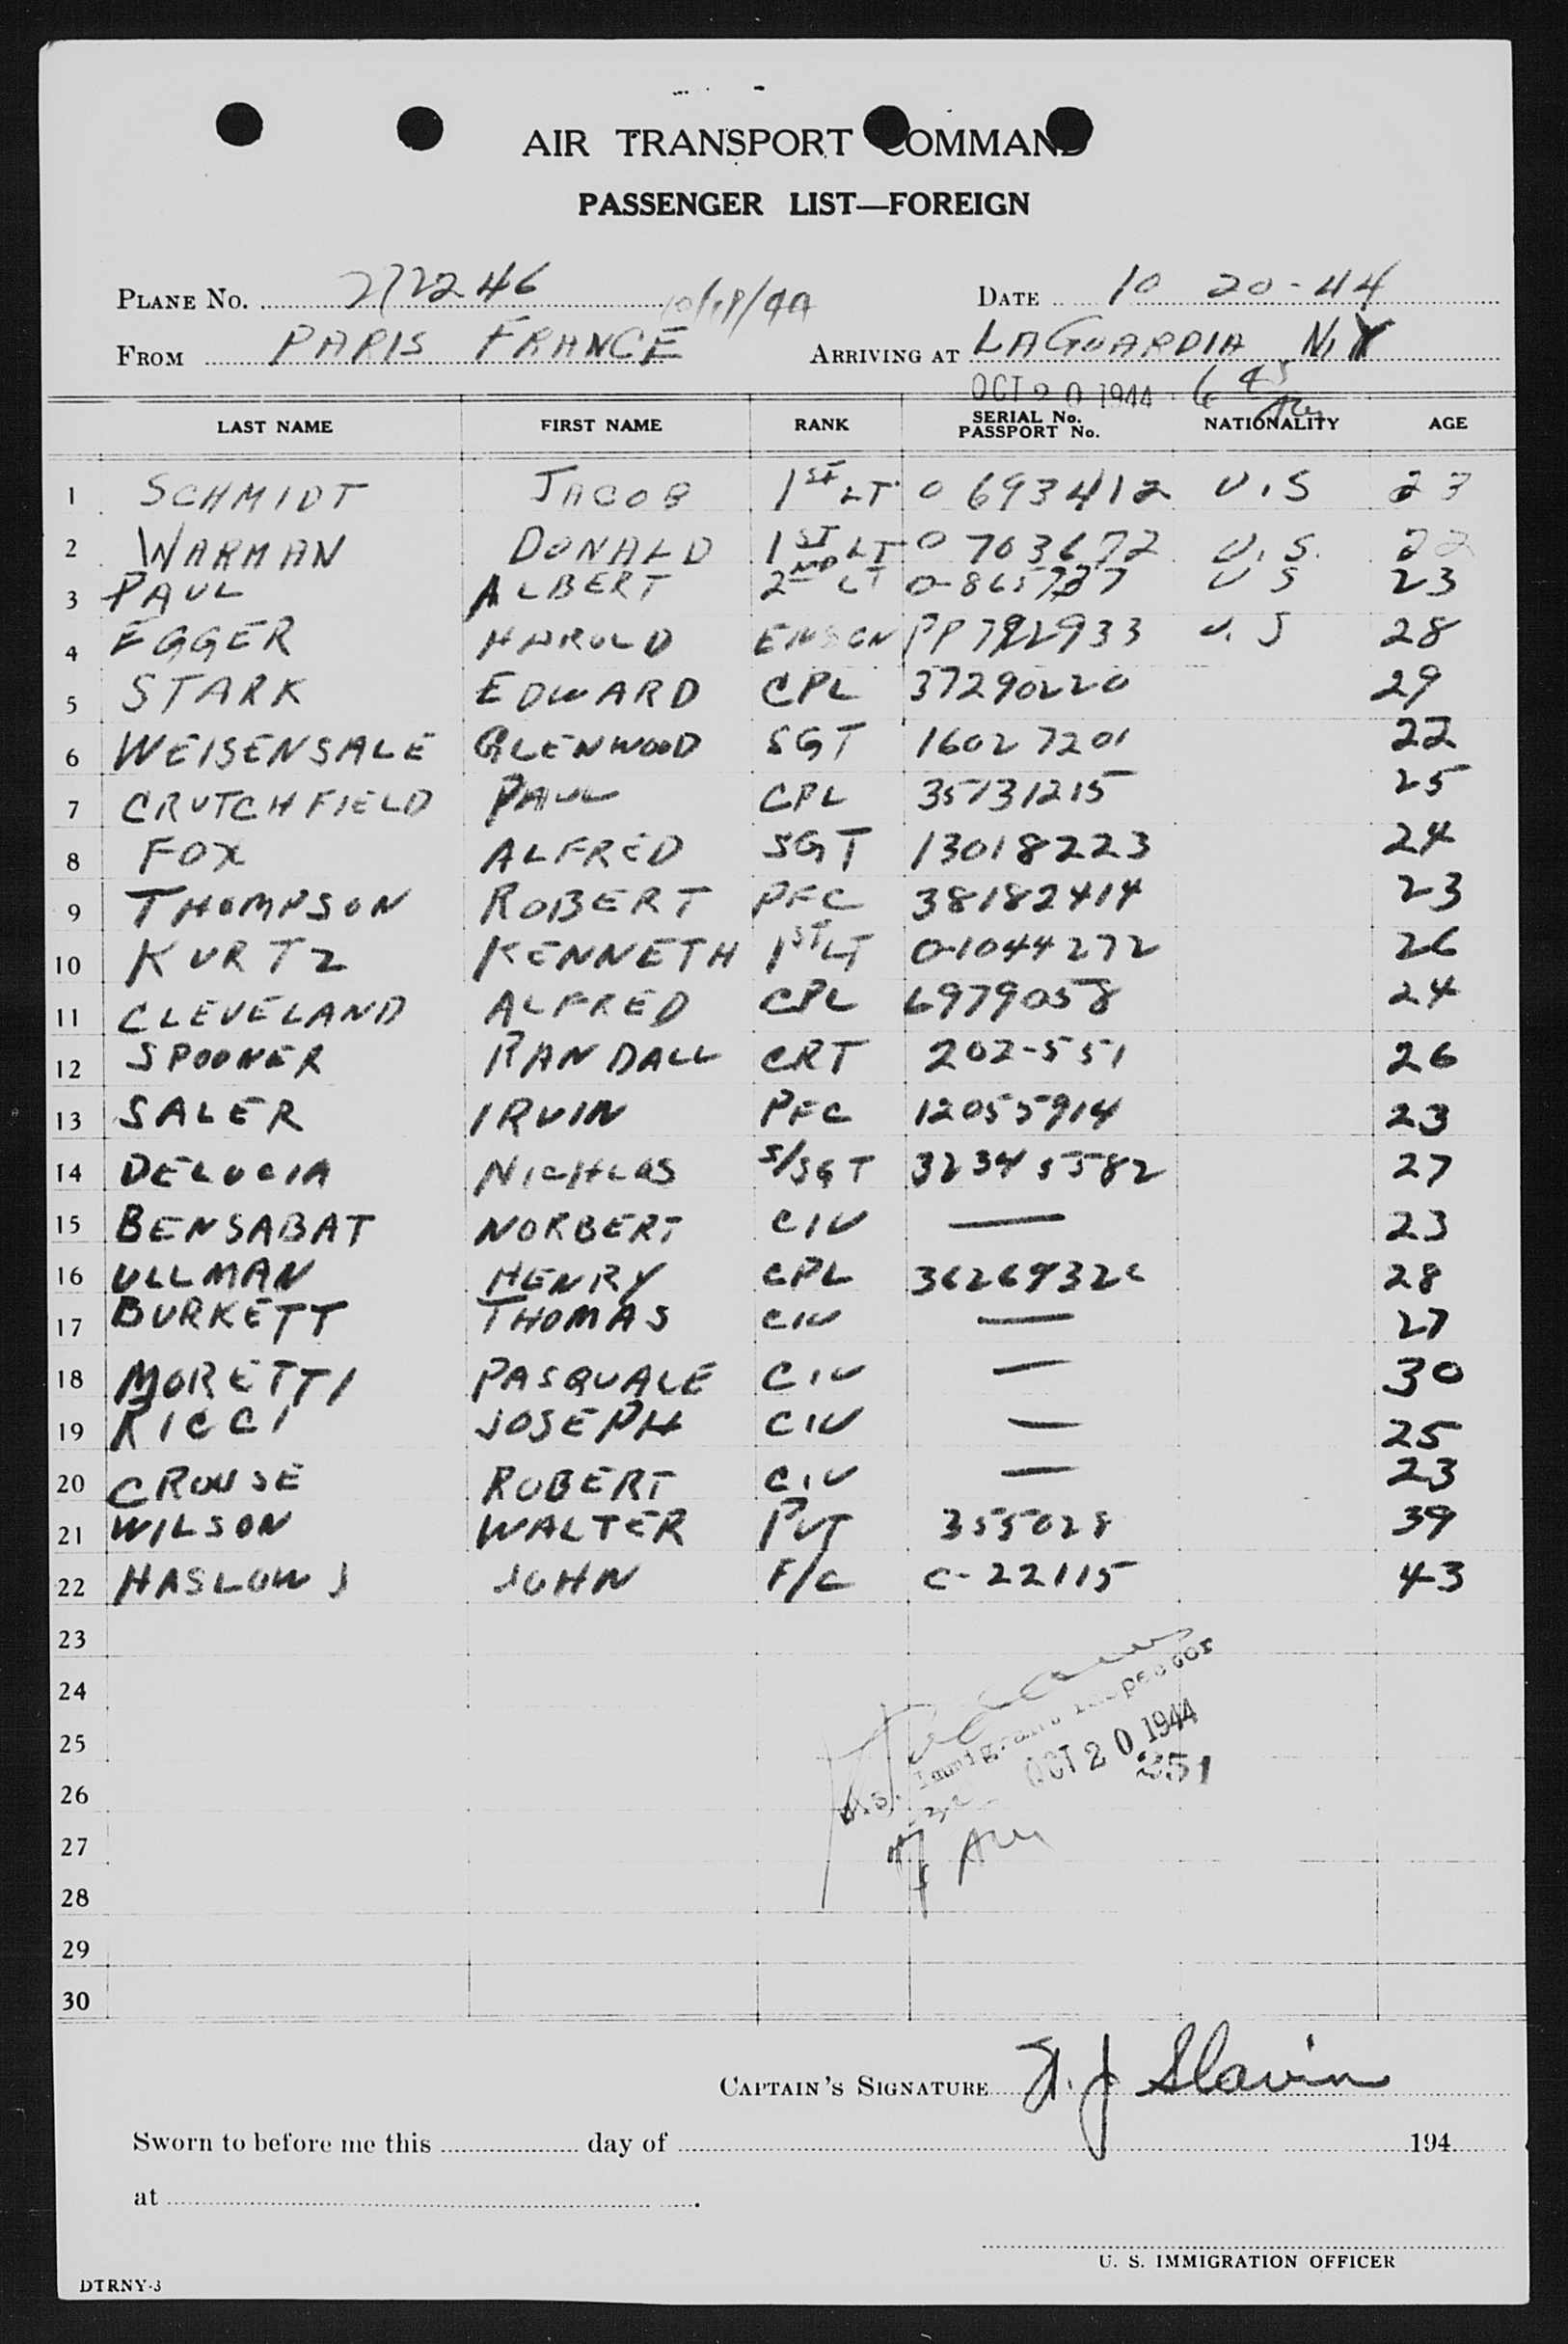 AIR TRANSPORT COMMAND
PASSENGER LIST—FOREIGN
PLANE No. 272246 DATE 10 20-44
10/18/44
FROM PARIS FRANCE ARRIVING AT LAGUARDIA N.Y
OCT 20 1944 6 45 AM
LAST NAME FIRST NAME RANK SERIAL No. PASSPORT No. NATIONALITY AGE
1 SCHMIDT JACOB 1ST LT O 693412 U.S 23
2 WARMAN DONALD 1ST LT O 703672 U.S. 22
3 PAUL ALBERT 2ND LT O-865727 U S 23
4 EGGER HAROLD ENSGN PP 792933 U.S 28
5 STARK EDWARD CPL 37290220 29
6 WEISENSALE GLENWOOD SGT 16027201 22
7 CRUTCHFIELD PAUL CPL 35131215 25
8 FOX ALFRED SGT 13018223 24
9 THOMPSON ROBERT PFC 38182414 23
10 KURTZ KENNETH 1ST LT O-1044272 26
11 CLEVELAND ALFRED CPL 6979058 24
12 SPOONER RANDALL CRT 202-551 26
13 SALER IRVIN PFC 12055914 23
14 DELUCIA NICHLOS S/SGT 32345582 27
15 BENSABAT NORBERT CIV — 23
16 ULLMAN HENRY CPL 28
17 BURKETT THOMAS CIV — 27
18 MORETTI PASQUALE CIV — 30
19 RICCI JOSEPH CIV — 25
20 CROUSE ROBERT CIV — 23
21 WILSON WALTER PVT 355028 39
22 HASLOW J JOHN F/C C-22115 43
23
24
U.S. Immigrant Inspector
25
OCT 20 1944
351
26
27
7 AM
28
29
30
CAPTAIN'S SIGNATURE J Slavin
Sworn to before me this day of 194
at .
U. S. IMMIGRATION OFFICER
DTRNY-3